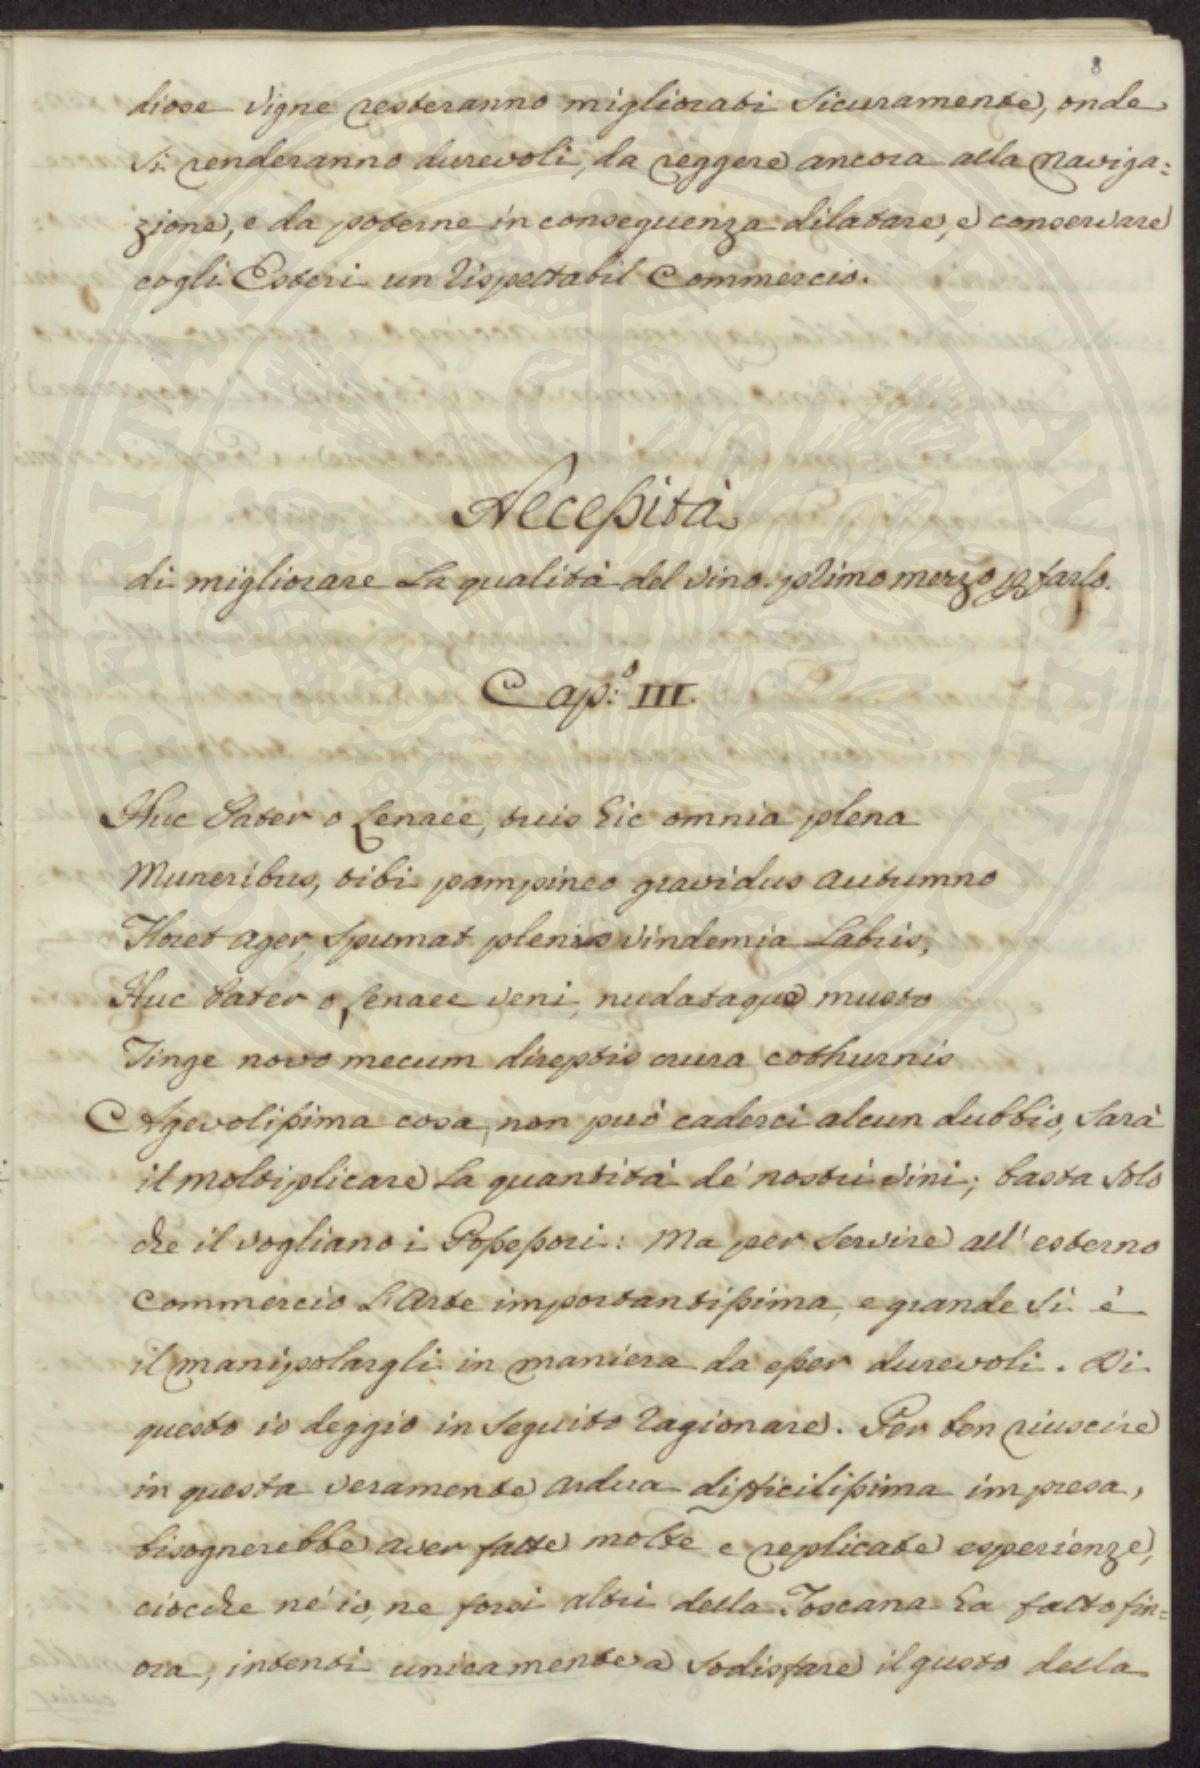 8
diose Vigne resteranno migliorati Sicuramente, onde
Si renderanno durevoli, da reggere ancora alla Naviga=
zione, e da poterne in conseguenza dilatare, e conservare
cogli Esteri un Rispettabil Commercio.
Necessità
di migliorare La qualità del Vino. primo mezzo p farlo.
Cap:º III.
Huc Pater o Lenaee, tuis hic omnia plena
Muneribus, tibi pampineo gravidus Autumno
Floret Ager, Spumat plenis Vindemia Labris,
Huc Pater o Lenaee veni, nudataque musto
Tinge novo mecum direptis crura cothurnis
Agevolissima cosa, non può caderci alcun dubbio, Sarà
il moltiplicare La quantità de' nostri Vini; basta Solo
che il Vogliano i Possessori: Ma per Servire all' esterno
Commercio L'Arte importantissima, e grande Si è
il manipolargli in maniera da esser durevoli. Di
questo io deggio in Seguito Ragionare. Per ben riuscire
in questa veramente ardua difficilissima impresa,
bisognerebbe aver fatte molte e replicate esperienze,
ciocche né io, ne forsi altri della Toscana ha fatto fin=
ora, intenti unicamente a Sodisfare il gusto della
PROSPERITATI PUBLICAE AUGENDAE